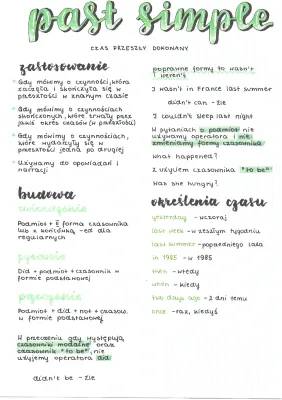 past simple
CZAS PRZESZŁY DOKONANY
zastosowanie
Gdy mówimy o czynności, która
zaczęła i skończyła się w
przeszłości w znanym czasie
Gdy mówimy o czynnościach
skończonych, które trwały przez
jakiś okres czasów (w przeszłości)
Gdy mówimy o czynnościach,
które wydarzyły się w
przeszłości jedna po drugiej
Używamy do opowiadań i
narracji
budowa
twierdzenie
Podmiot + II forma czasownika
lub z końcówką -ed dla
regularnych
pytanie
Did + podmiot + czasownik w
formie podstawowej
przeczenie
Podmiot + did + not + czasow.
w formie podstawowej
W przeczeniu gdy występują
czasowniki modalne oraz
czasownik "to be", nie
używamy operatora did
didn't be - źle
poprawne formy to wasn't
i weren't
I wasn't in France last summer
didn't can - źle
I couldn't sleep last night
W pytaniach o podmiot nie
używamy operatora i nie
zmieniamy formy czasownika
What happened?
Z użyciem czasownika "to be"
Was she hungry?
określenia czasu
yesterday - wczoraj
last week - w zeszłym tygodniu
last summer - poprzedniego lata
in 1985 - w 1985
then - wtedy
when - kiedy
two days ago - 2 dni temu
once - raz, kiedyś